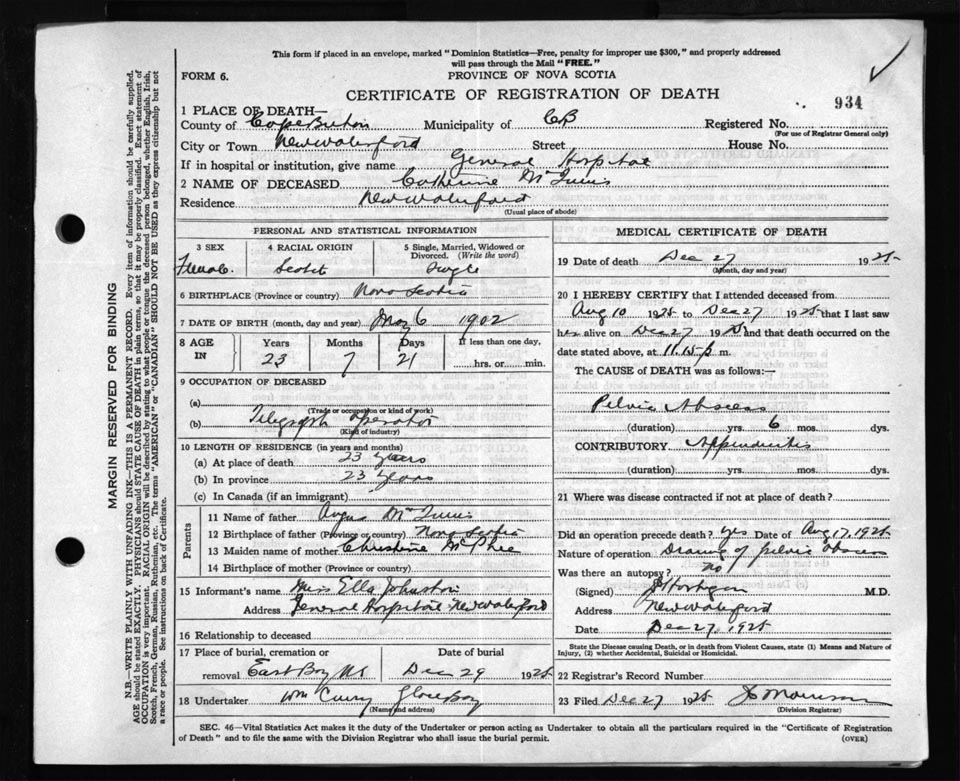 This form if placed in an envelope, marked "Dominion Statistics—Free, penalty for improper use $300," and properly addressed
will pass through the Mail "FREE."
FORM 6.
PROVINCE OF NOVA SCOTIA
CERTIFICATE OF REGISTRATION OF DEATH
934
1 PLACE OF DEATH—
County of Cape Breton Municipality of CB Registered No.
(For use of Registrar General only)
City or Town New Waterford Street House No.
If in hospital or institution, give name General Hospital
2 NAME OF DECEASED Catherine McInnis
Residence New Waterford
(Usual place of abode)
PERSONAL AND STATISTICAL INFORMATION
3 SEX 4 RACIAL ORIGIN 5 Single, Married, Widowed or Divorced. (Write the word)
Female Scotch Single
6 BIRTHPLACE (Province or country) Nova Scotia
7 DATE OF BIRTH (month, day and year) May 6 1902
8 AGE IN Years Months Days If less than one day,
23 7 21 hrs. or min.
9 OCCUPATION OF DECEASED
(a)
(Trade or occupation or kind of work)
(b) Telegraph Operator
(Kind of industry)
10 LENGTH OF RESIDENCE (in years and months)
(a) At place of death 23 years
(b) In province 23 years
(c) In Canada (if an immigrant)
Parents
11 Name of father Angus McInnis
12 Birthplace of father (Province or country) Nova Scotia
13 Maiden name of mother Christine McPhee
14 Birthplace of mother (Province or country)
15 Informant's name Miss Ella Johnston
Address General Hospital New Waterford
16 Relationship to deceased
17 Place of burial, cremation or removal Date of burial
East Bay NS Dec 29 1925
18 Undertaker Wm Curry Glace Bay
(Name and address)
MEDICAL CERTIFICATE OF DEATH
19 Date of death Dec 27 1925
(Month, day and year)
20 I HEREBY CERTIFY that I attended deceased from
Aug 10 1925 to Dec 27 1925 that I last saw
her alive on Dec 27 1925 and that death occurred on
date stated above, at 11.15 p m.
The CAUSE of DEATH was as follows:—
Pelvic Abscess
(duration) yrs. 6 mos. dys.
CONTRIBUTORY Appendicitis
(duration) yrs. mos. dys.
21 Where was disease contracted if not at place of death?
Did an operation precede death? yes Date of Aug 17, 1925
Nature of operation Drainage of pelvic abscess
Was there an autopsy? No
(Signed) M.D.
Address New Waterford
Date Dec 27, 1925
State the Disease causing Death, or in death from Violent Causes, state (1) Means and Nature of
Injury, (2) whether Accidental, Suicidal or Homicidal.
22 Registrar's Record Number
23 Filed Dec 27 1925 Morrison
(Division Registrar)
SEC. 46—Vital Statistics Act makes it the duty of the Undertaker or person acting as Undertaker to obtain all the particulars required in the "Certificate of Registration
of Death" and to file the same with the Division Registrar who shall issue the burial permit.
(OVER)
MARGIN RESERVED FOR BINDING
N.B.—WRITE PLAINLY WITH UNFADING INK—THIS IS A PERMANENT RECORD. Every item of information should be carefully supplied.
AGE should be stated EXACTLY. PHYSICIANS should STATE CAUSE OF DEATH in plain terms, so that it may be properly classified. Exact statement of
OCCUPATION is very important. RACIAL ORIGIN will be described by stating to what people or tongue the deceased person belonged, whether English, Irish,
Scotch, French, German, Russian, Ruthenian, etc. The terms "AMERICAN" or "CANADIAN" SHOULD NOT BE USED as they express citizenship but not
a race or people. See instructions on back of Certificate.